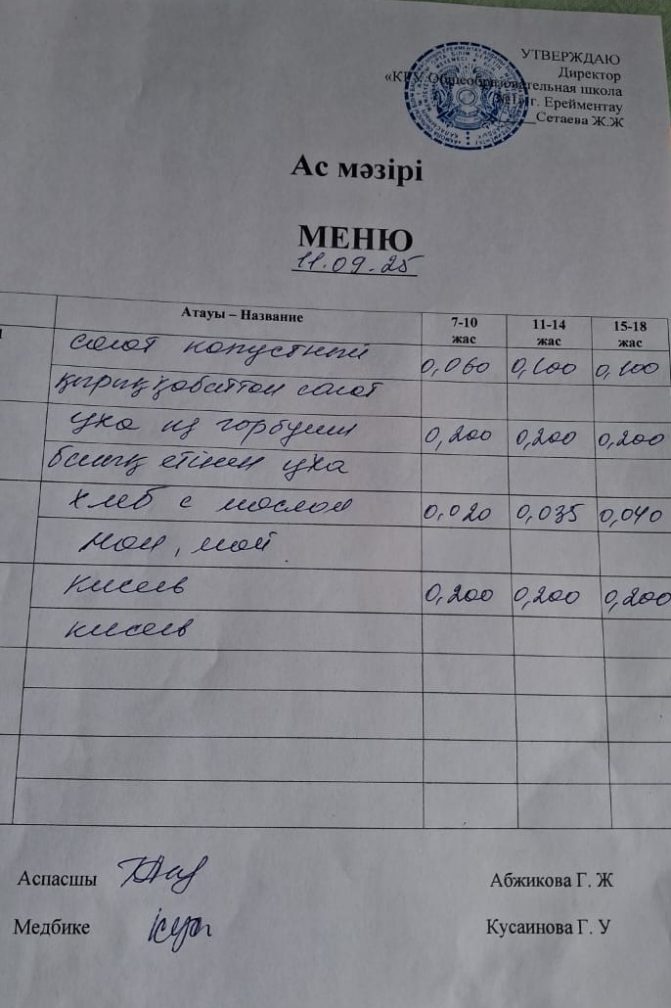 УТВЕРЖДАЮ
Директор
«КГУ Общеобразовательная школа
№1 г. Ерейментау
Сетаева Ж.Ж
Ас мәзірі
МЕНЮ
11.09.25
Атауы – Название 7-10 жас 11-14 жас 15-18 жас
салат капустный 0,060 0,100 0,100
қырыққабаттан салат
уха из горбуши 0,200 0,200 0,200
балық етінен уха
хлеб с маслом 0,020 0,035 0,040
нан, май
кисель 0,200 0,200 0,200
кисель
Аспасшы Абжикова Г. Ж
Медбике Кусаинова Г. У